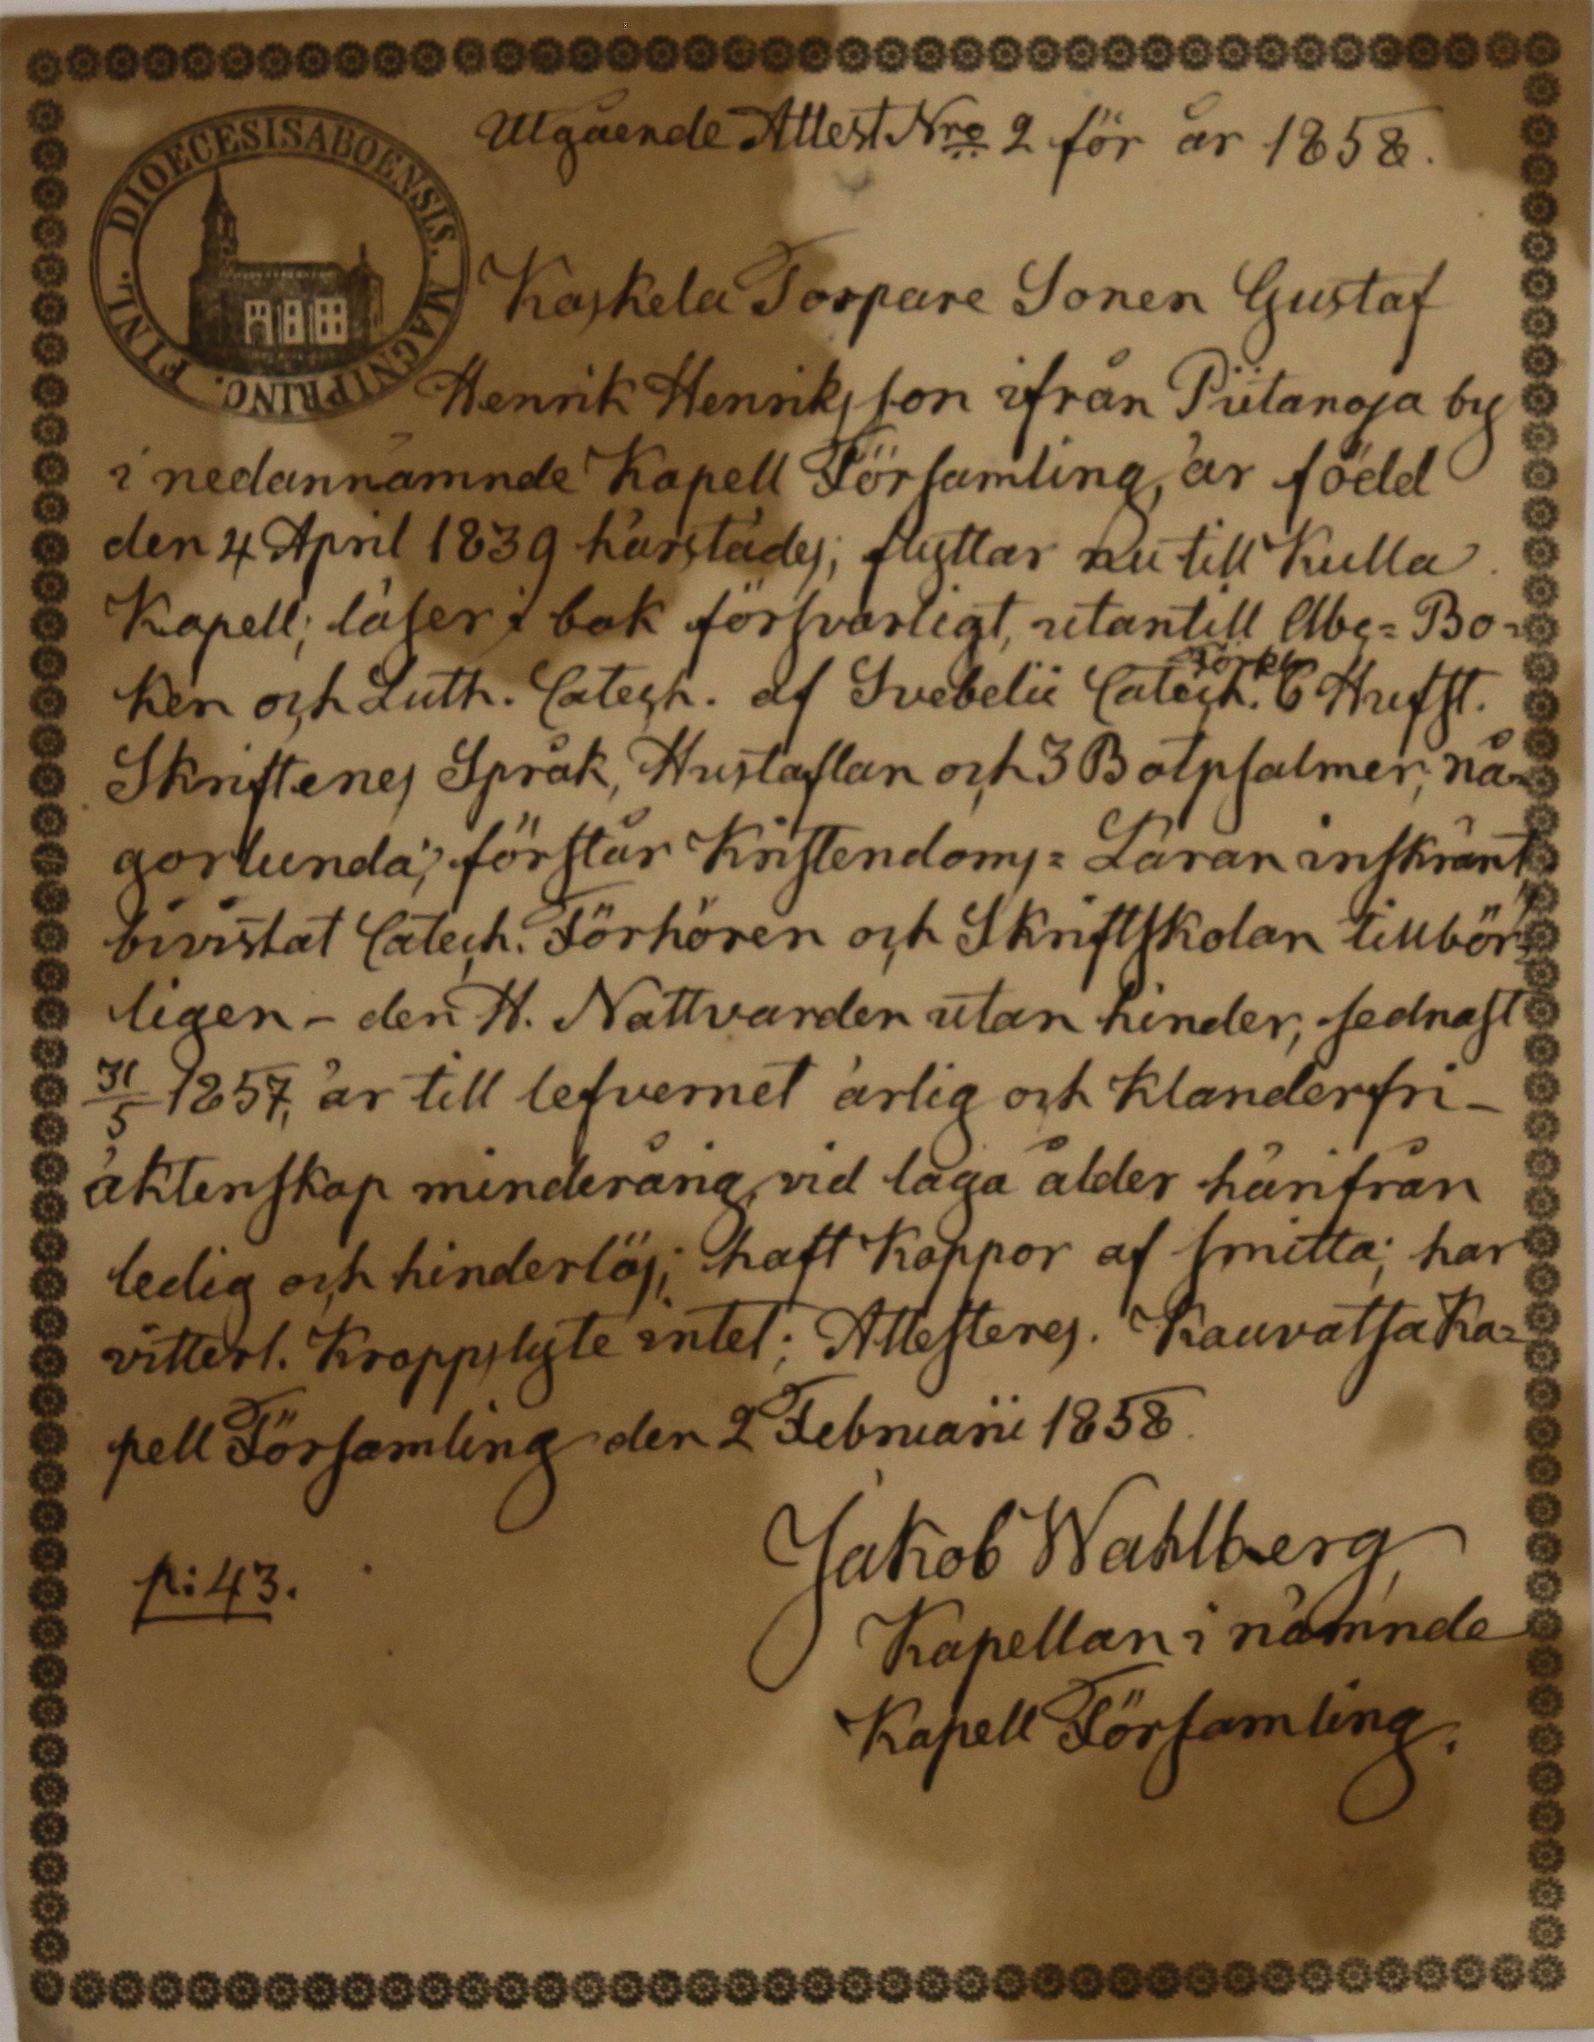 Utgående Attest Nro 2 för år 1858.
DIOECESIS ABOENSIS. MAGNI PRINC. FINL.
Kaskela Torpare Sonen Gustaf
Henrik Henriksson ifrån Piitanoja by
i nedannämnde Kapell Församling, är född
den 4 April 1839 härstädes; flyttar nu till Kulla
Kapell; läser i bok försvarligt, utantill Abc=Bo-
ken och Luth. Catech. af Svebelii Catech. 6 Hufst.
Skriftenes Språk, Hustaflan och 3 Botpsalmer, nå-
gorlunda; förstår Kristendoms=Läran inskränt,
bivistat Catech. Förhören och Skriftskolan tillbör-
ligen – den H. Nattvarden utan hinder, sednast
31/5 1857, är till lefvernet ärlig och klanderfri –
äktenskap minderårig, vid laga ålder härifrån
ledig och hinderlös; haft koppor af smitta; har
vitterl. Kroppslyte intet; Attesteres. Kauvatsa Ka=
pell Församling den 2 Februarii 1858.
Jakob Wahlberg,
p: 43.
Kapellan i nämnde
Kapell Församling.